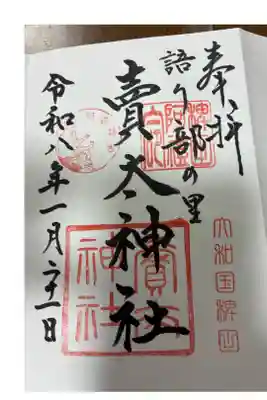 奉拝
語り部の里
賣太神社
令和八年一月二十一日
大和国稗田
賣太神社